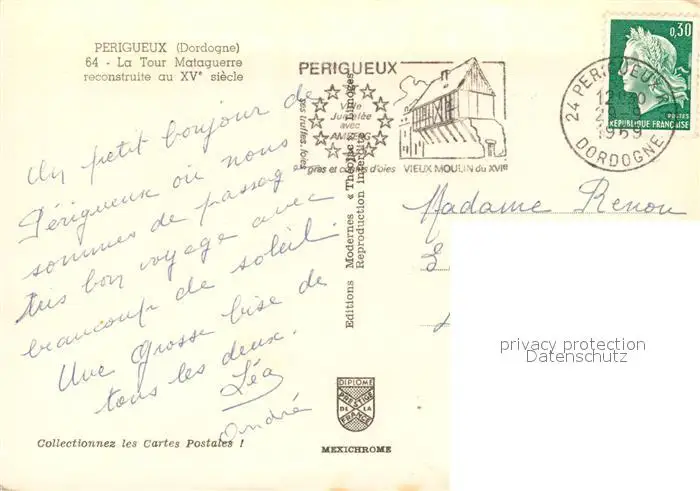 PERIGUEUX (Dordogne)
64 - La Tour Mataguerre
reconstruite au XVe siècle
Un petit bonjour de
Périgueux où nous
sommes de passage
très bon voyage avec
beaucoup de soleil.
Une grosse bise de
tous les deux.
Léa
André
Collectionnez les Cartes Postales !
Editions Modernes « Théojac » Limoges
Reproduction Interdite
DIPLOME
PRESTIGE
DE LA
FRANCE
MEXICHROME
PERIGUEUX
Ville
Jumelée
avec
AMBERG
ses truffes, foies
gras et pâtés d'oies
VIEUX MOULIN du XVIe
24 PERIGUEUX
1969
DORDOGNE
0,30
POSTES
REPUBLIQUE FRANÇAISE
Madame Renou
privacy protection
Datenschutz